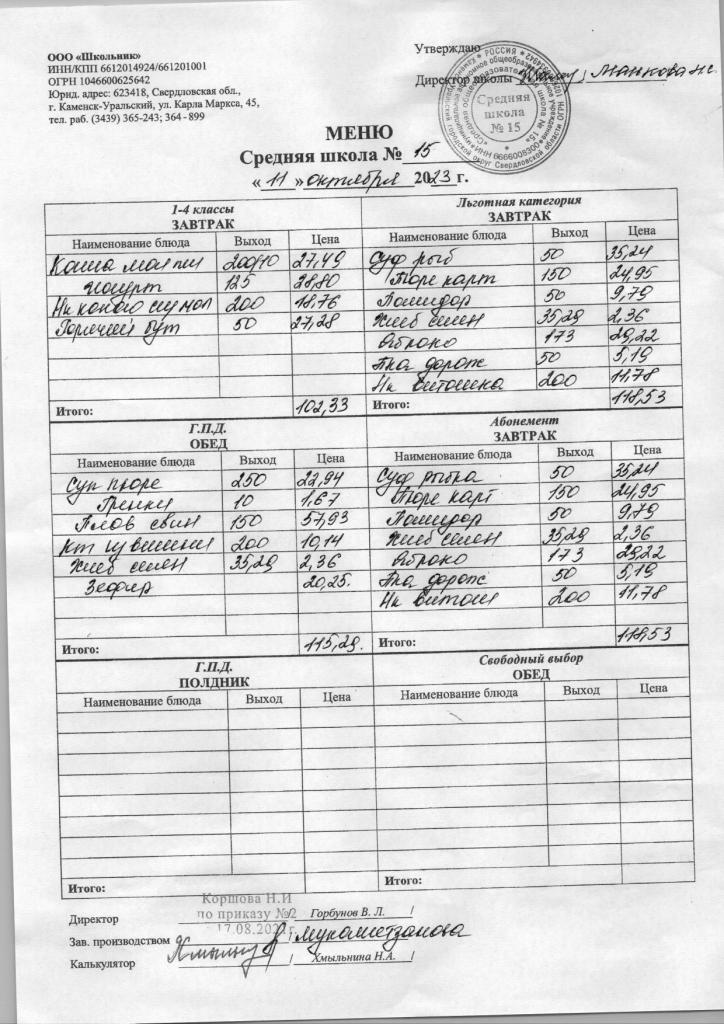 ООО «Школьник»
ИНН/КПП 6612014924/661201001
ОГРН 1046600625642
Юрид. адрес: 623418, Свердловская обл.,
г. Каменск-Уральский, ул. Карла Маркса, 45,
тел. раб. (3439) 365-243; 364 - 899
Утверждаю
Директор школы
Средняя школа № 15
МЕНЮ
Средняя школа № 15
« 11 » октября 2023 г.
1-4 классы
ЗАВТРАК
Наименование блюда Выход Цена
Каша мол пш 200/10 27,49
йогурт 125 28,80
Нк какао 200 18,76
Горячий бут 50 27,28
Итого: 102,33
Льготная категория
ЗАВТРАК
Наименование блюда Выход Цена
Суф рыб 50 35,24
Пюре карт 150 24,95
Помидор 50 9,79
Хлеб 35,29 2,36
Яблоко 173 29,22
Пка дорож 50 5,19
Нк витошка 200 11,78
Итого: 118,53
Г.П.Д.
ОБЕД
Наименование блюда Выход Цена
Суп пюре 250 22,94
Гренки 10 1,67
Плов свин 150 57,93
200 10,14
Хлеб 35,29 2,36
Зефир 20,25
Итого: 115,29.
Абонемент
ЗАВТРАК
Наименование блюда Выход Цена
Суф рыба 50 35,24
Пюре карт 150 24,95
Помидор 50 9,79
Хлеб 35,29 2,36
Яблоко 173 29,22
Пка дорож 50 5,19
Нк витош 200 11,78
Итого: 118,53
Г.П.Д.
ПОЛДНИК
Наименование блюда Выход Цена
Итого:
Свободный выбор
ОБЕД
Наименование блюда Выход Цена
Итого:
Коршова Н.И
по приказу №2
17.08.2021г.
Директор / Горбунов В. Л. /
Зав. производством / Мухаметзанова
Калькулятор / Хмыльнина Н.А. /